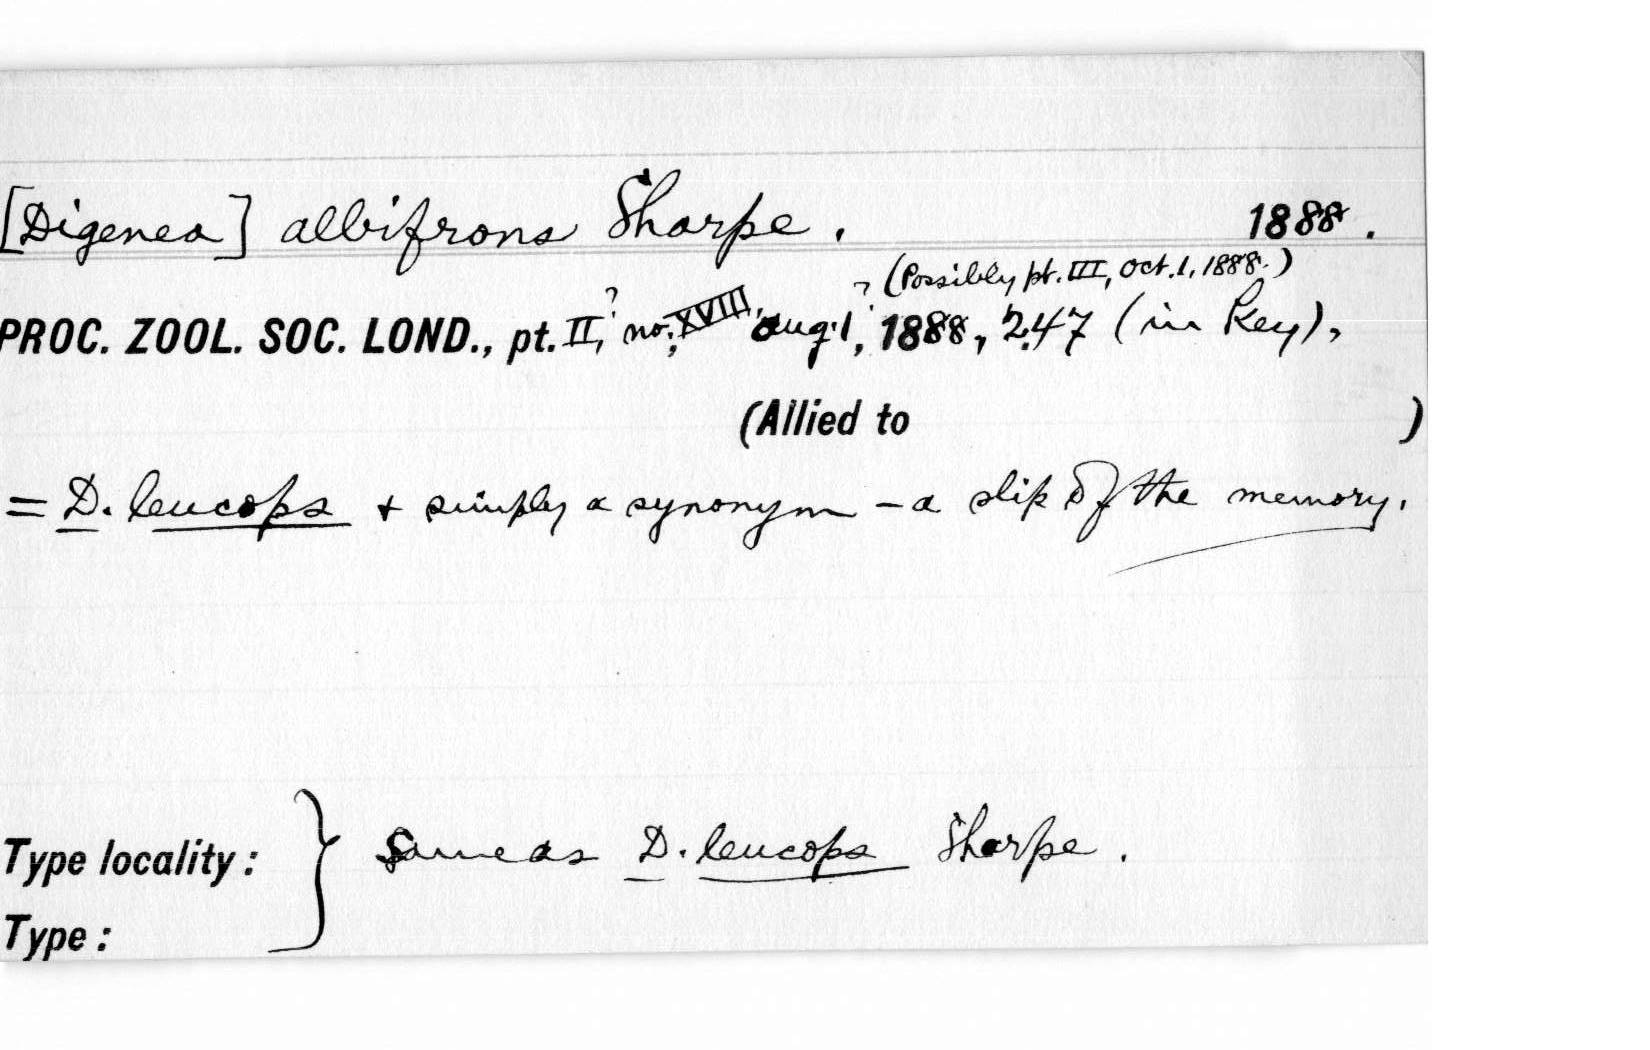 [Digenea] albifrons Sharpe. 1888.
? (Possibly pt. III, Oct. 1, 1888.)
PROC. ZOOL. SOC. LOND., pt. II,? no. XVIII, Aug. 1, 1888, 247 (in Key),
(Allied to )
= D. leucops + simply a synonym – a slip of the memory.
Type locality: } Same as D. leucops Sharpe.
Type: